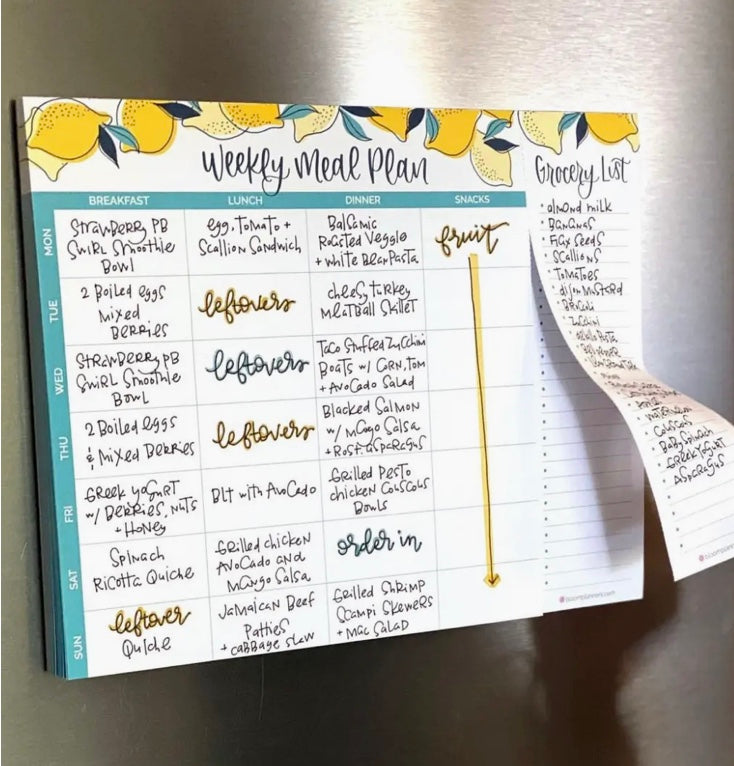 Weekly Meal Plan
BREAKFAST LUNCH DINNER SNACKS
MON
Strawberry PB
Swirl Smoothie
Bowl
egg, Tomato +
Scallion Sandwich
Balsamic
Roasted Veggie
+ White Bean Pasta
fruit
TUE
2 Boiled eggs
Mixed
Berries
leftovers
cheesy turkey
Meatball Skillet
WED
Strawberry PB
Swirl Smoothie
Bowl
leftovers
Taco Stuffed Zucchini
Boats w/ Corn, Tom
+ Avocado Salad
THU
2 Boiled eggs
& Mixed Berries
leftovers
Blacked Salmon
w/ Mango Salsa
+ Roast. asparagus
FRI
Greek yogurt
w/ Berries, Nuts
+ Honey
Blt with Avocado
Grilled Pesto
chicken Couscous
Bowls
SAT
Spinach
Ricotta Quiche
Grilled chicken
Avocado and
Mango Salsa
order in
SUN
leftover
Quiche
Jamaican Beef
Patties
+ cabbage slaw
Grilled Shrimp
Scampi Skewers
+ Mac Salad
Grocery List
almond milk
Bananas
Flax Seeds
Scallions
Tomatoes
dijon Mustard
Broccoli
Zucchini
Couscous
Baby Spinach
Greek Yogurt
Asparagus
bloomplanners.com